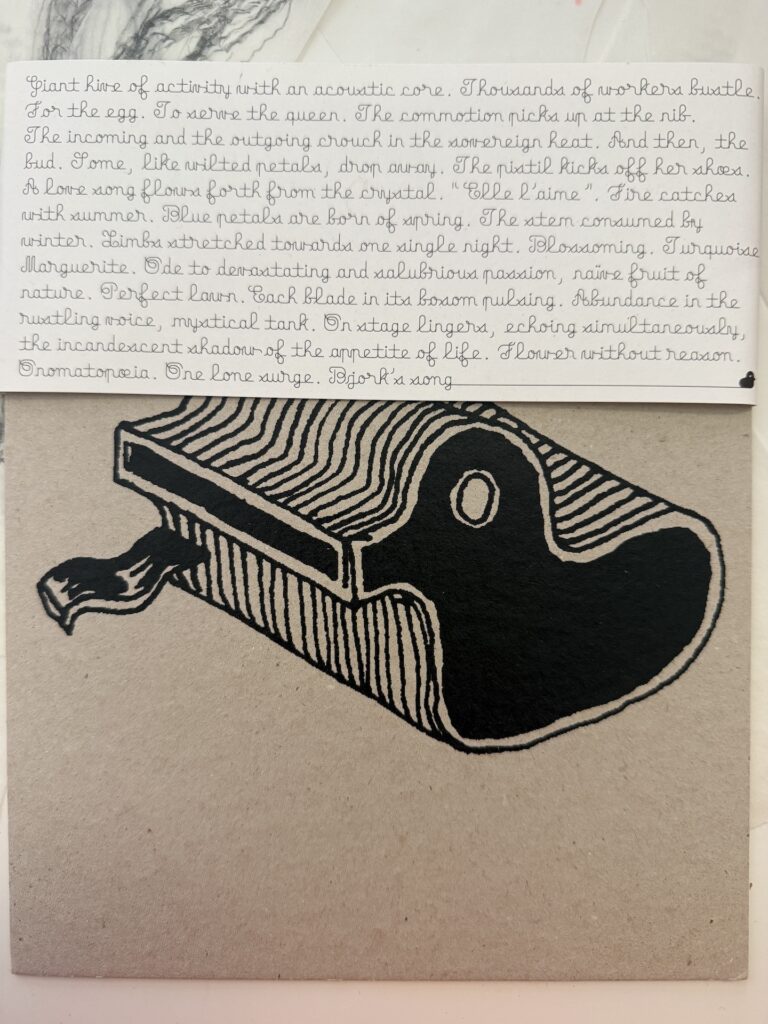 Giant hive of activity with an acoustic core. Thousands of workers bustle.
For the egg. To serve the queen. The commotion picks up at the nib.
The incoming and the outgoing crouch in the sovereign heat. And then, the
bud. Some, like wilted petals, drop away. The pistil kicks off her shoes.
A love song flows forth from the crystal. "Elle l'aime". Fire catches
with summer. Blue petals are born of spring. The stem consumed by
winter. Limbs stretched towards one single night. Blossoming. Turquoise
Marguerite. Ode to devastating and salubrious passion, naïve fruit of
nature. Perfect lawn. Each blade in its bosom pulsing. Abundance in the
rustling voice, mystical tank. On stage lingers, echoing simultaneously,
the incandescent shadow of the appetite of life. Flower without reason.
Onomatopœia. One lone surge. Bjork's song